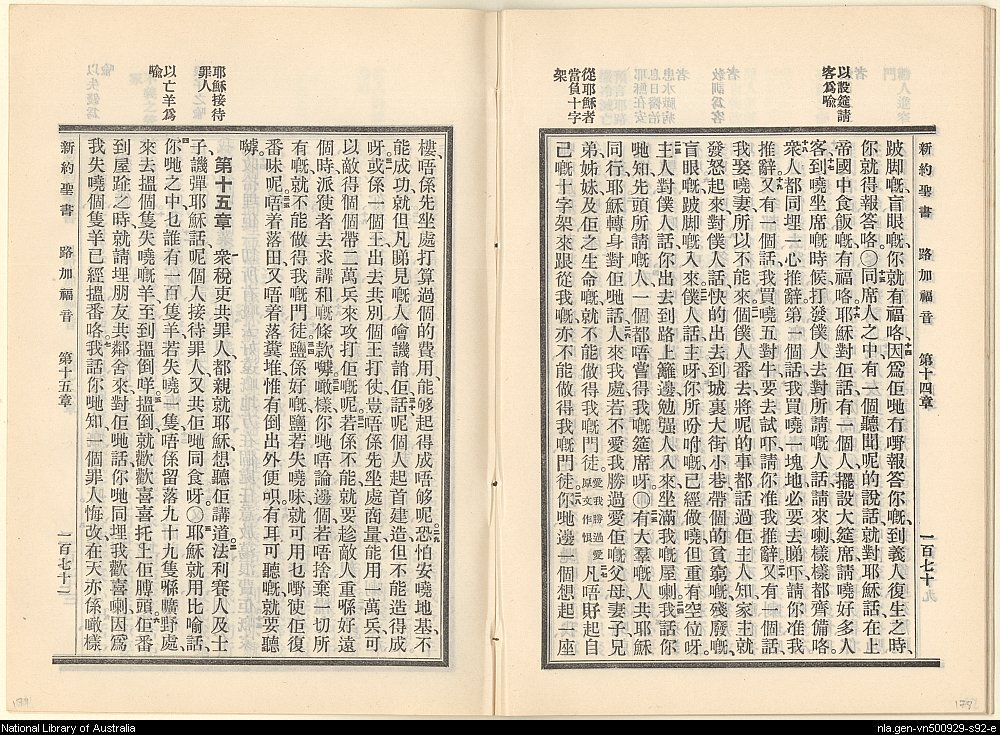 以設筵請
客爲喻
從耶穌者
當負十字
架
新約聖書 路加福音 第十四章 一百七十九
跛脚嘅盲眼嘅你就有福咯因爲佢哋有嘢報答你嘅到義人復生之時
你就得報答咯〇同席人之中有一個聽聞呢的說話就對耶穌話在上
帝國中食飯嘅有福咯耶穌對佢話有一個人擺設大筵席請嘵好多人
客到嘵坐席嘅時候打發僕人去對所請嘅人話請來喇樣樣都齊備咯
衆人都同埋一心推辭第一個話我買嘵一塊地必要去睇吓請你准我
推辭又有一個話我買嘵五對牛要去試吓請你准我推辭又有一個話
我娶嘵妻所以不能來個僕人番去將呢的事都話過佢主人知家主就
發怒起來對僕人話快的出去到城裏大街小巷帶個的貧窮嘅殘廢嘅
盲眼嘅跛脚嘅入來僕人話主呀你所吩咐嘅已經做嘵但重有空位呀
主人對僕人話你出去到路上籬邊勉强人入來坐滿我嘅屋喇我話你
哋知先頭所請嘅人一個都唔嘗得我嘅筵席呀〇有大羣嘅人共耶穌
同行耶穌轉身對佢哋話人來我處若不愛我勝過愛佢嘅父母妻子兄
弟姊妹及佢之生命嘅就不能做得我嘅門徒愛我勝過愛原文作恨凡唔肯起自
己嘅十字架來跟從我嘅亦不能做得我嘅門徒你哋邊一個想起一座
耶穌接待
罪人
以亡羊爲
喻
樓唔係先坐處打算過個的費用能够起得成唔够呢恐怕安嘵地基不
能成功就但凡睇見嘅人噲譏誚佢話呢個人起首建造但不能造得成
呀或係一個王出去共別個王打仗豈唔係先坐處商量能用一萬兵可
以敵得個個帶二萬兵來攻打佢嘅呢若係不能就要趁敵人重喺好遠
個時派使者去求講和嘅條款嚊噉樣你哋唔論邊個若唔捨棄一切所
有嘅就不能做得我嘅門徒鹽係好嘅鹽若失嘵味就可用乜嘢使佢復
番味呢唔着落田又唔着落糞堆惟有倒出外便唄有耳可聽嘅就要聽
嚊
第十五章 衆稅吏共罪人都親就耶穌想聽佢講道法利賽人及士
子譏彈耶穌話呢個人接待罪人又共佢哋同食呀〇耶穌就用比喻話
你哋之中乜誰有一百隻羊若失嘵一隻唔係留落九十九隻喺曠野處
來去搵個隻失嘵嘅羊至到搵倒咩搵倒就歡歡喜喜托上佢膊頭佢番
到屋跧之時就請埋朋友共鄰舍來對佢哋話你哋同埋我歡喜喇因爲
我失嘵個隻羊已經搵番咯我話你哋知一個罪人悔改在天亦係噉樣
新約聖書 路加福音 第十五章 一百七十二
National Library of Australia
nla.gen-vn500929-s92-e